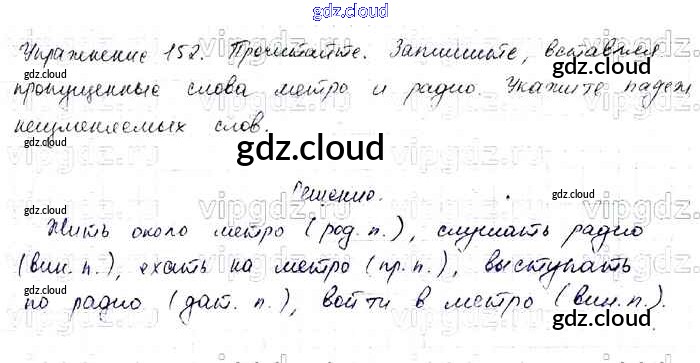 gdz.cloud
Упражнение 152. Прочитайте. Запишите, вставляя
gdz.cloud
gdz.cloud
gdz.cloud
пропущенные слова метро и радио. Укажите падеж
неизменяемых слов.
gdz.cloud
gdz.cloud
gdz.cloud
Решение.
gdz.cloud
gdz.cloud
Жить около метро (род. п.), слушать радио
(вин. п.), ехать на метро (пр. п.), выступать
gdz.cloud
gdz.cloud
по радио (дат. п.), войти в метро (вин. п.).
gdz.cloud
gdz.cloud